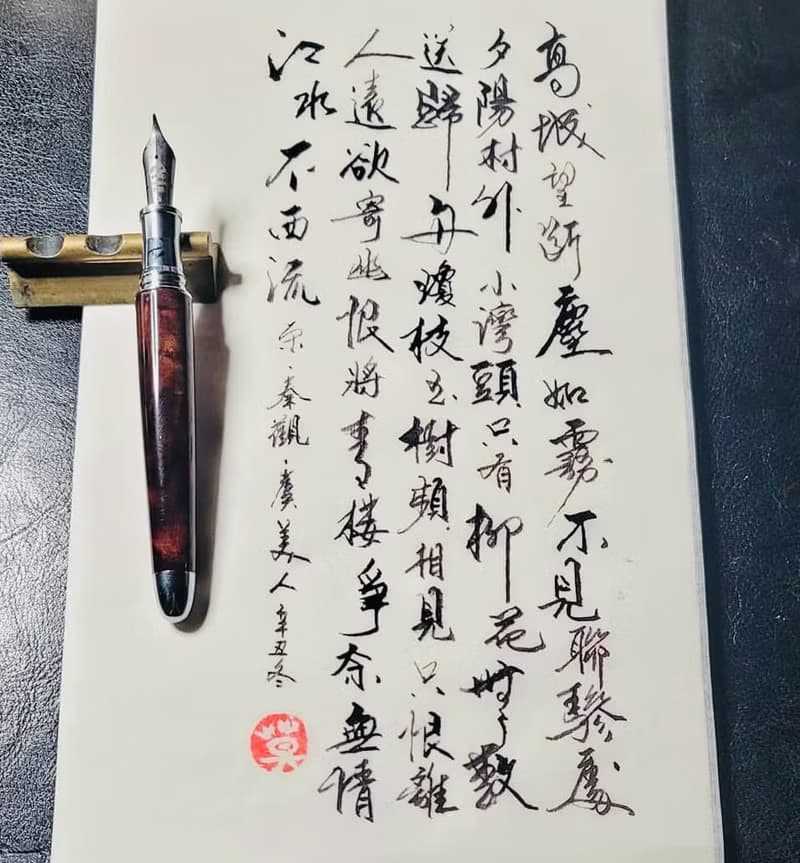 高城望斷塵如霧不見聯驂處
夕陽村外小灣頭只有柳花無數
送歸舟瓊枝玉樹頻相見只恨離
人遠欲寄幽恨將青樓爭奈無情
江水不西流 宋·秦觀·虞美人 辛丑冬